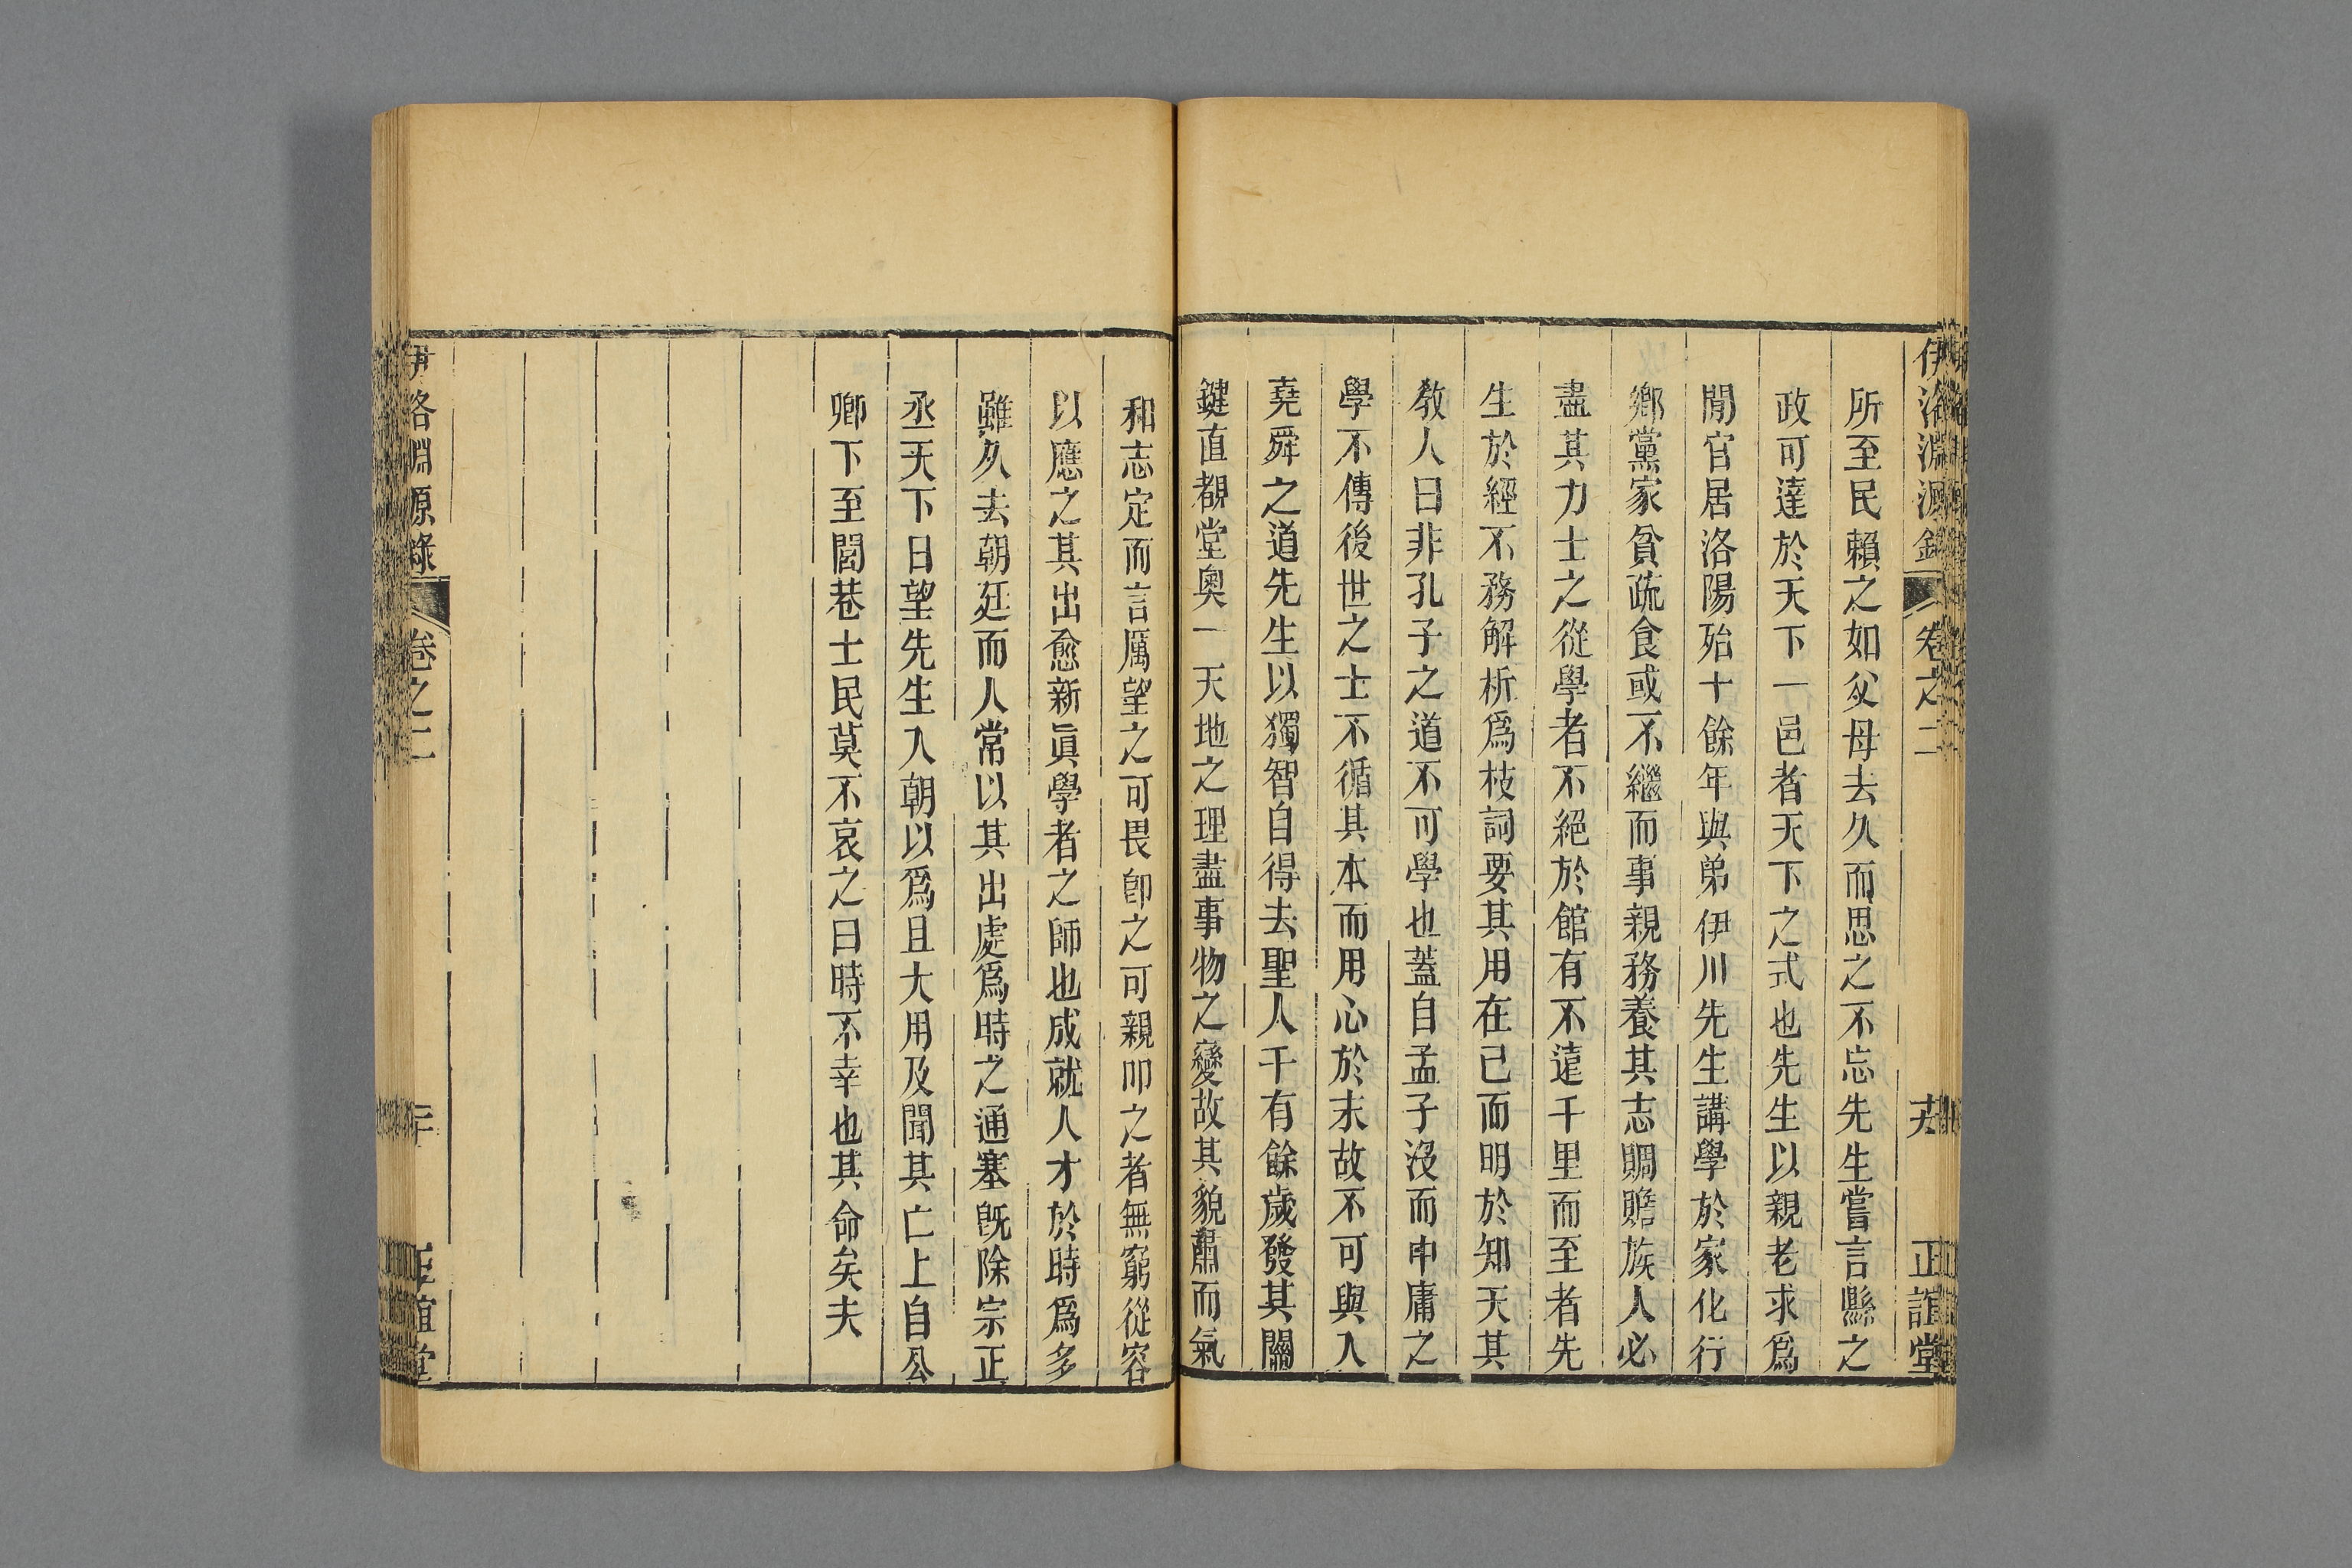 伊洛淵源錄 卷之二 正誼堂
所至民賴之如父母去久而思之不忘先生嘗言縣之
政可達於天下一邑者天下之式也先生以親老求爲
閒官居洛陽殆十餘年與弟伊川先生講學於家化行
鄉黨家貧疏食或不繼而事親務養其志賙贍族人必
盡其力士之從學者不絕於館有不遠千里而至者先
生於經不務解析爲枝詞要其用在己而明於知天其
敎人曰非孔子之道不可學也蓋自孟子沒而中庸之
學不傳後世之士不循其本而用心於末故不可與入
堯舜之道先生以獨智自得去聖人千有餘歲發其關
鍵直覩堂奧一天地之理盡事物之變故其貌肅而氣
和志定而言厲望之可畏卽之可親叩之者無窮從容
以應之其出愈新眞學者之師也成就人才於時爲多
雖久去朝廷而人常以其出處爲時之通塞旣除宗正
丞天下日望先生入朝以爲且大用及聞其亡上自公
卿下至閭巷士民莫不哀之曰時不幸也其命矣夫
伊洛淵源錄 卷之二 正誼堂